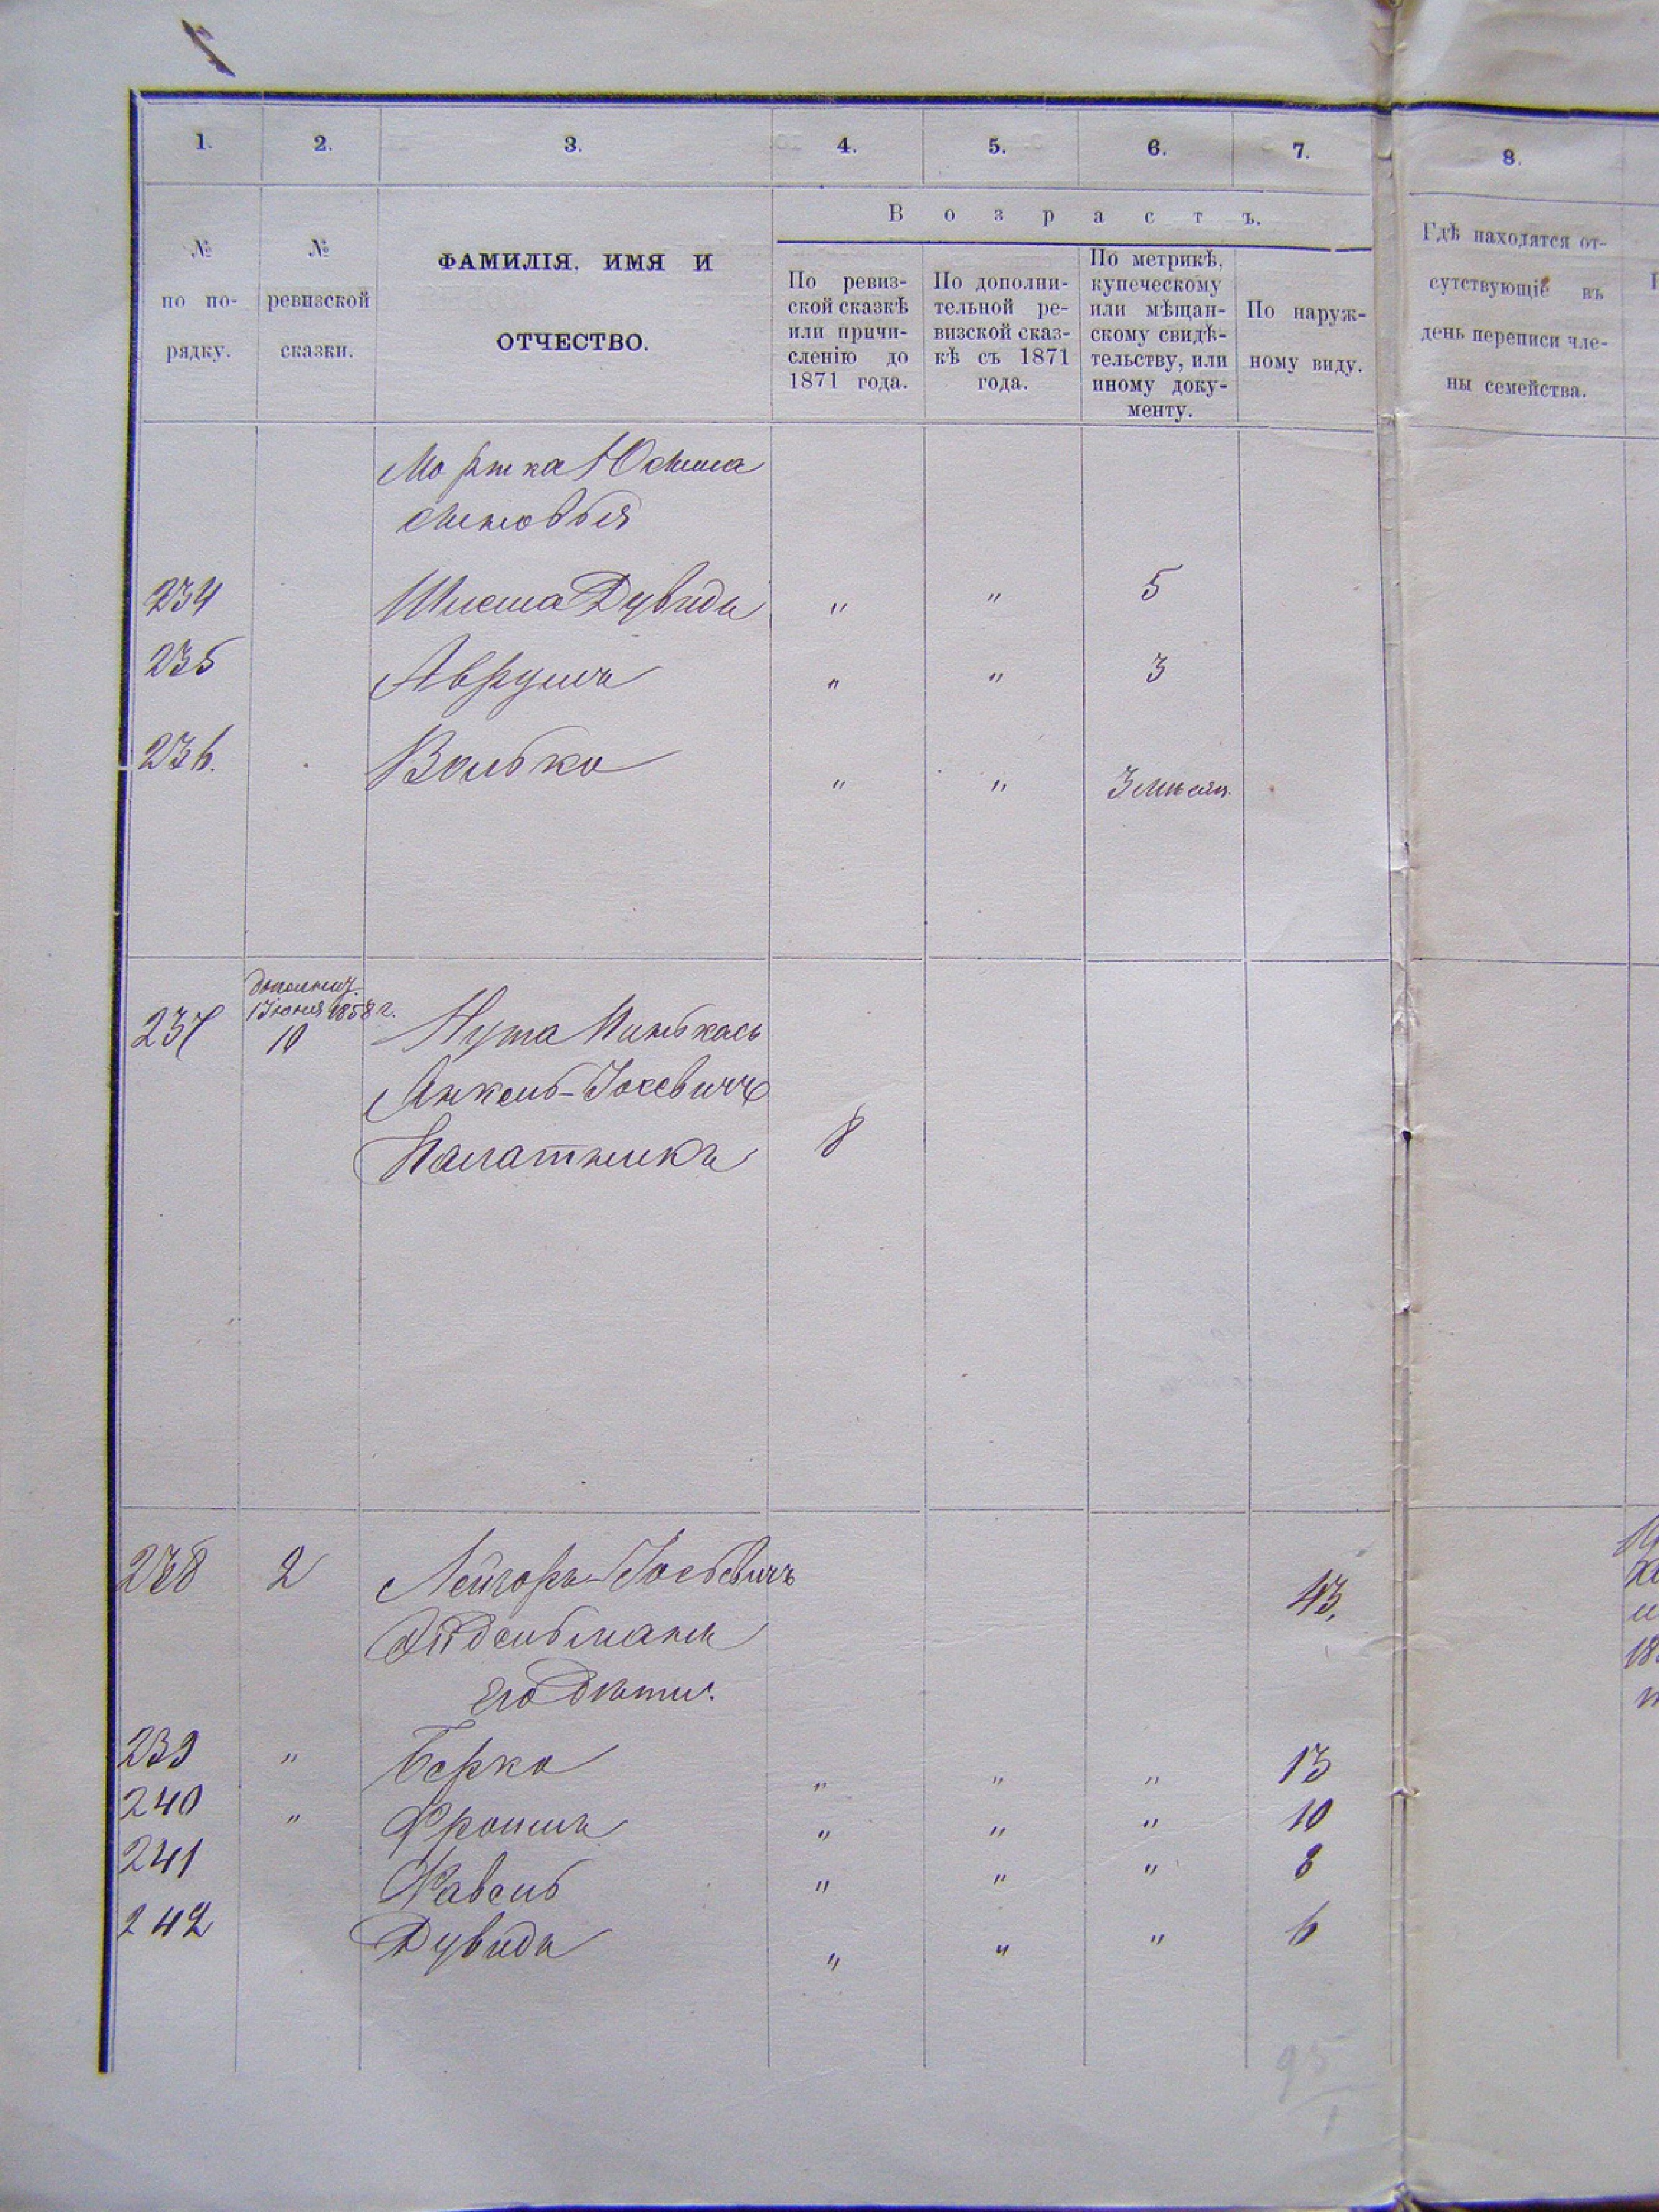 1. 2. 3. 4. 5. 6. 7. 8.
№ по порядку.
№ ревизской сказки.
ФАМИЛІЯ, ИМЯ И
ОТЧЕСТВО.
Возрастъ.
По ревиз-
ской сказкѣ
или причи-
сленію до
1871 года.
По дополни-
тельной ре-
визской сказ-
кѣ съ 1871
года.
По метрикѣ,
купеческому
или мѣщан-
скому свидѣ-
тельству, или
иному доку-
менту.
По наруж-
ному виду.
Гдѣ находятся от-
сутствующіе въ
день переписи чле-
ны семейства.
Мортка
сыновья
234 Дувидъ " " 5
235 Аврумъ " " 3
236. Волько " " 3 мѣсяц.
дополнит.
1858 г.
237 10 Нута Пинькасъ
Янкель-Іосевичъ
Палатникъ 8
238 2 Лейзоръ Іосьевичъ 43.
Эйдельманъ
его дѣти.
239 " Берко " " " 13
240 " Фроимъ " " " 10
241 " " " 8
242 Дувидъ " " " 6
95
1